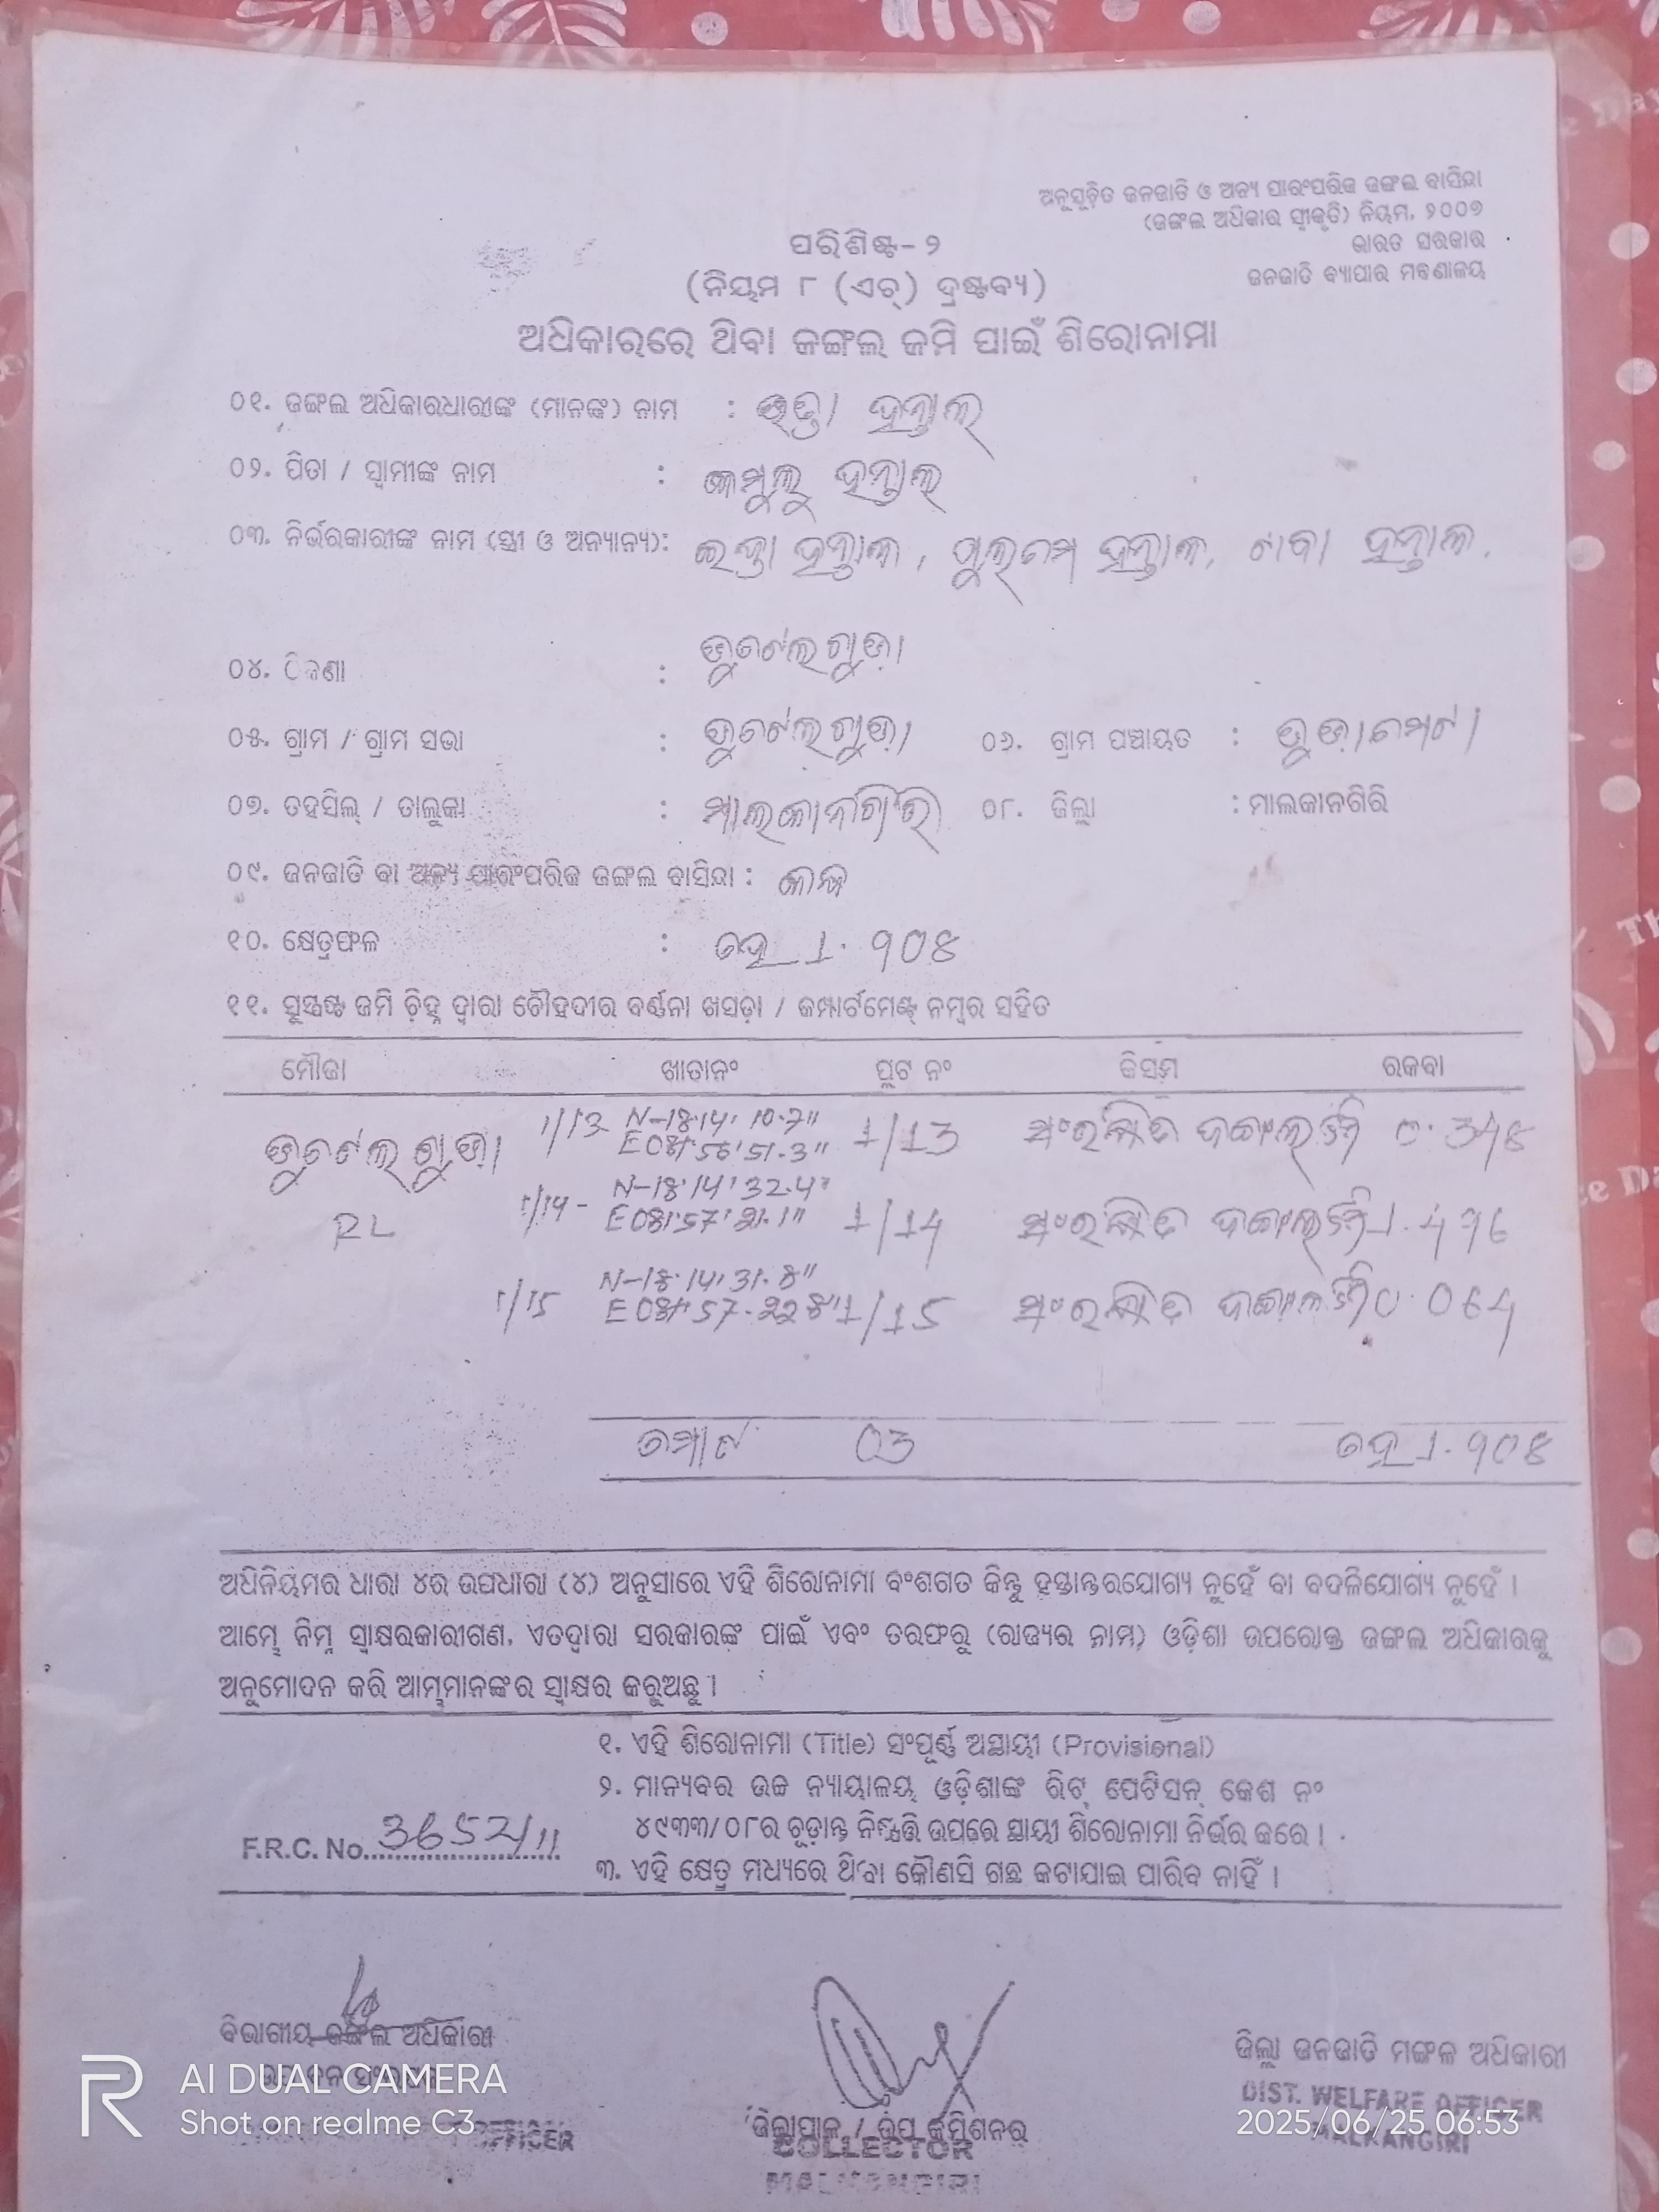 ଅନୁସୂଚିତ ଜନଜାତି ଓ ଅନ୍ୟ ପାରଂପରିକ ଜଙ୍ଗଲ ବାସିନ୍ଦା
(ଜଙ୍ଗଲ ଅଧିକାର ସ୍ୱୀକୃତି) ନିୟମ, ୨୦୦୭
ଭାରତ ସରକାର
ଜନଜାତି ବ୍ୟାପାର ମନ୍ତ୍ରଣାଳୟ
ପରିଶିଷ୍ଟ-୨
(ନିୟମ ୮ (ଏଚ୍) ଦ୍ରଷ୍ଟବ୍ୟ)
ଅଧିକାରରେ ଥିବା ଜଙ୍ଗଲ ଜମି ପାଇଁ ଶିରୋନାମା
୦୧. ଜଙ୍ଗଲ ଅଧିକାରଧାରୀଙ୍କ (ମାନଙ୍କ) ନାମ : ହନ୍ତାଲ୍
୦୨. ପିତା / ସ୍ୱାମୀଙ୍କ ନାମ : ହନ୍ତାଲ୍
୦୩. ନିର୍ଭରକାରୀଙ୍କ ନାମ (ସ୍ତ୍ରୀ ଓ ଅନ୍ୟାନ୍ୟ): ହନ୍ତାଲ, ହନ୍ତାଲ, ହନ୍ତାଲ.
୦୪. ଠିକଣା :
୦୫. ଗ୍ରାମ / ଗ୍ରାମ ସଭା : ୦୬. ଗ୍ରାମ ପଞ୍ଚାୟତ :
୦୭. ତହସିଲ୍ / ତାଲୁକା : ମାଲକାନଗିରି ୦୮. ଜିଲ୍ଲା : ମାଲକାନଗିରି
୦୯. ଜନଜାତି ବା ଅନ୍ୟ ପାରଂପରିକ ଜଙ୍ଗଲ ବାସିନ୍ଦା :
୧୦. କ୍ଷେତ୍ରଫଳ : ହେ 1.908
୧୧. ସୁସ୍ପଷ୍ଟ ଜମି ଚିହ୍ନ ଦ୍ୱାରା ଚୌହଦୀର ବର୍ଣ୍ଣନା ଖସଡ଼ା / କମ୍ପାର୍ଟମେଣ୍ଟ୍ ନମ୍ବର ସହିତ
ମୌଜା ଖାତାନଂ ପ୍ଲଟ ନଂ କିସମ ରକବା
1/13 N-18°14' 10.7"
E 081°56'51.3" 1/13 ସଂରକ୍ଷିତ 0.348
1/14 - N-18°14'32.4"
E 081°57'21.1" 1/14 ସଂରକ୍ଷିତ 1.496
RL
1/15 N-18°14'31.8"
E 081°57-22 8" 1/15 ସଂରକ୍ଷିତ 0.064
ମୋଟ 03 ହେ 1.908
ଅଧିନିୟମର ଧାରା ୪ର ଉପଧାରା (୪) ଅନୁସାରେ ଏହି ଶିରୋନାମା ବଂଶଗତ କିନ୍ତୁ ହସ୍ତାନ୍ତରଯୋଗ୍ୟ ନୁହେଁ ବା ବଦଳିଯୋଗ୍ୟ ନୁହେଁ ।
ଆମ୍ଭେ ନିମ୍ନ ସ୍ୱାକ୍ଷରକାରୀଗଣ, ଏତଦ୍ୱାରା ସରକାରଙ୍କ ପାଇଁ ଏବଂ ତରଫରୁ (ରାଜ୍ୟର ନାମ) ଓଡ଼ିଶା ଉପରୋକ୍ତ ଜଙ୍ଗଲ ଅଧିକାରକୁ
ଅନୁମୋଦନ କରି ଆମ୍ଭମାନଙ୍କର ସ୍ୱାକ୍ଷର କରୁଅଛୁ ।
୧. ଏହି ଶିରୋନାମା (Title) ସଂପୂର୍ଣ୍ଣ ଅସ୍ଥାୟୀ (Provisional)
୨. ମାନ୍ୟବର ଉଚ୍ଚ ନ୍ୟାୟାଳୟ ଓଡ଼ିଶାଙ୍କ ରିଟ୍ ପେଟିସନ୍ କେଶ ନଂ
୪୯୩୩/୦୮ର ଚୂଡ଼ାନ୍ତ ନିଷ୍ପତ୍ତି ଉପରେ ସ୍ଥାୟୀ ଶିରୋନାମା ନିର୍ଭର କରେ ।
F.R.C. No. 3652/11
୩. ଏହି କ୍ଷେତ୍ର ମଧ୍ୟରେ ଥିବା କୌଣସି ଗଛ କଟାଯାଇ ପାରିବ ନାହିଁ ।
ବିଭାଗୀୟ ଜଙ୍ଗଲ ଅଧିକାରୀ
OFFICER
ଜିଲ୍ଲାପାଳ / ଉପ କମିଶନର
COLLECTOR
MALKANGIRI
ଜିଲ୍ଲା ଜନଜାତି ମଙ୍ଗଳ ଅଧିକାରୀ
DIST. WELFARE OFFICER
MALKANGIRI
AI DUAL CAMERA
Shot on realme C3
2025/06/25 06:53